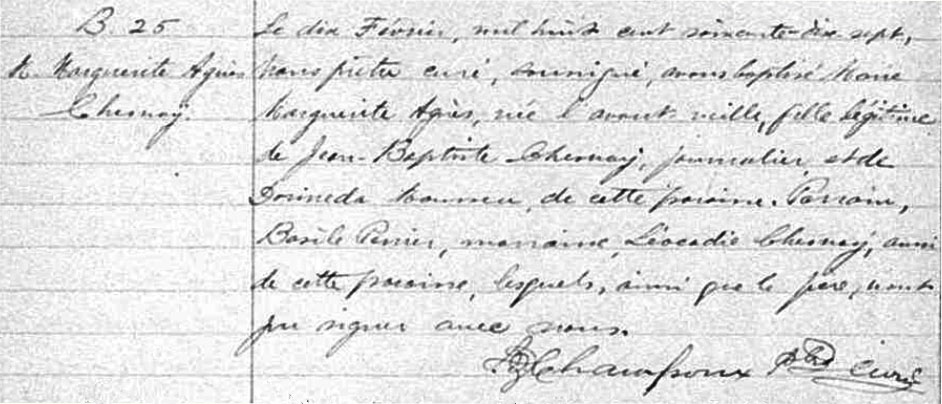 B. 25
M. Marguerite Agnès
Chesnay.
Le dix Février, mil huit cent soixante-dix sept,
Nous prêtre curé, soussigné, avons baptisé Marie
Marguerite Agnès, née l'avant veille, fille légitime
de Jean-Baptiste Chesnay, journalier, et de
de cette paroisse. Parrain,
Basile Perrier, marraine, Léocadie Chesnay, aussi
de cette paroisse, lesquels, ainsi que le père, n'ont
pu signer avec nous.
Champoux Ptre Curé